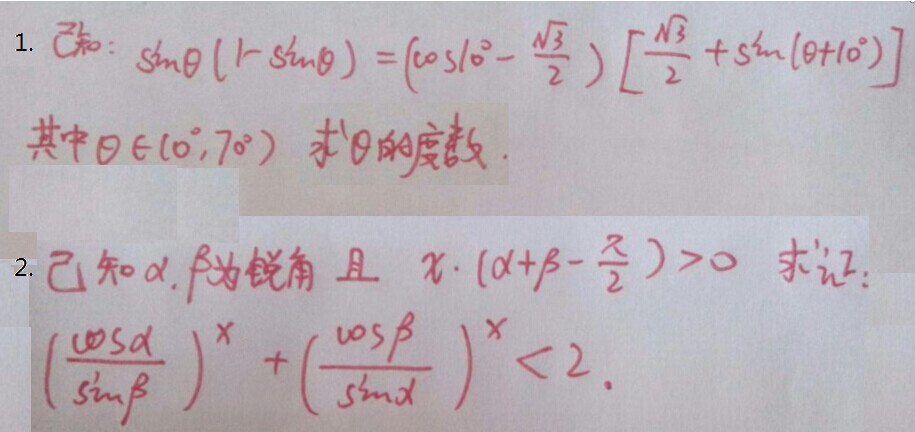 1. 已知: sinθ(1-sinθ) = (cos10° - √3/2)[√3/2 + sin(θ+10°)]
其中 θ∈(0°,70°) 求θ的度数.
2. 已知α,β为锐角 且 x·(α+β-π/2)>0 求证:
(cosα/sinβ)^x + (cosβ/sinα)^x < 2.